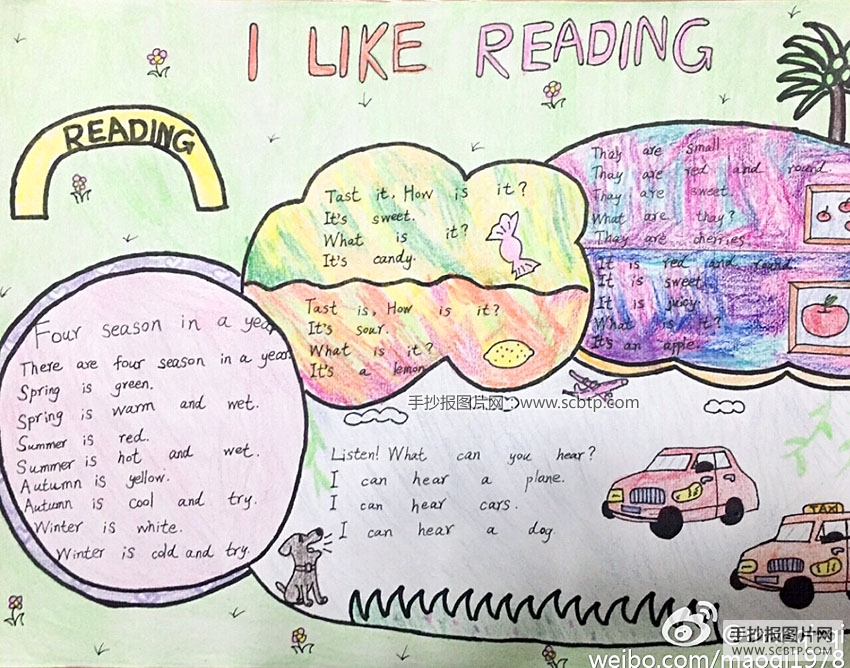 I LIKE READING
READING
Tast it, How is it?
It's sweet.
What is it?
It's candy.
Tast is, How is it?
It's sour.
What is it?
It's a lemon
Thay are small
Thay are red and round.
Thay are sweet
What are thay?
Thay are cherries
It is red and round.
It is sweet
It is juicy
What is it?
It's an apple.
Four season in a year
There are four season in a year.
Spring is green.
Spring is warm and wet.
Summer is red.
Summer is hot and wet.
Autumn is yellow.
Autumn is cool and try.
Winter is white.
Winter is cold and try.
手抄报图片网：www.scbtp.com
Listen! What can you hear?
I can hear a plane.
I can hear cars.
I can hear a dog.
TAXI
手抄报图片网
WWW.SCBTP.COM
weibo.com/maodi1978